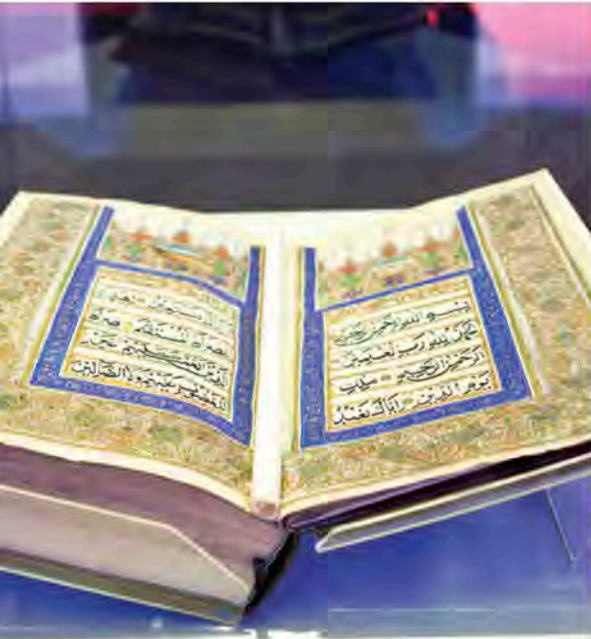 بسم الله الرحمن الرحيم
الحمد لله رب العالمين
الرحمن الرحيم ملك
يوم الدين اياك نعبد
واياك نستعين اهدنا
الصراط المستقيم صراط
الذين انعمت عليهم غير
المغضوب عليهم ولا الضالين